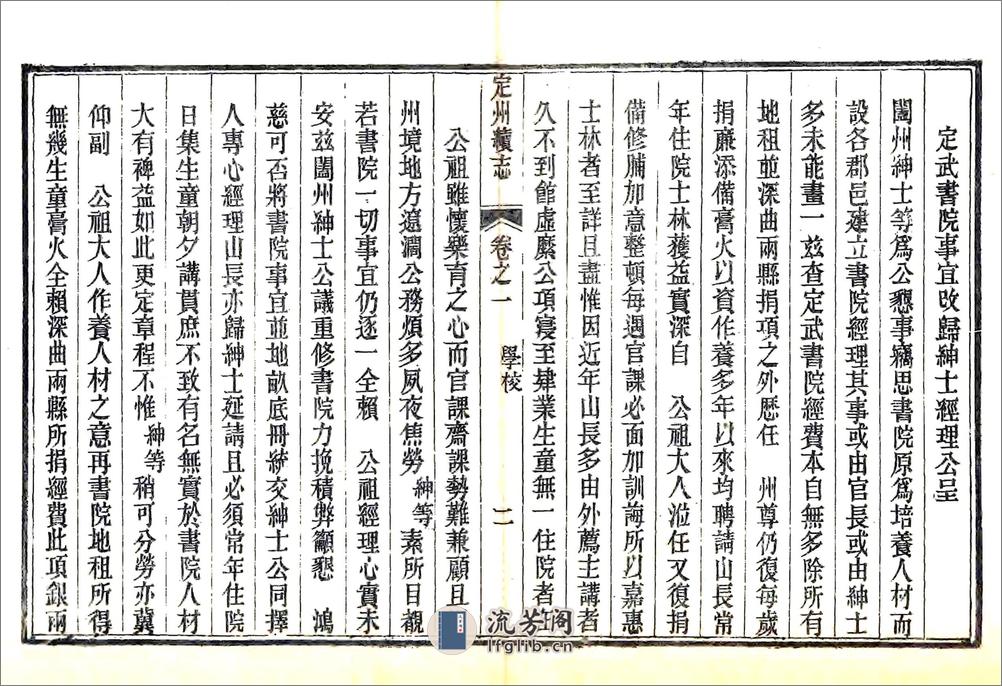 定武書院事宜改歸紳士經理公呈
闔州紳士等爲公懇事竊思書院原爲培養人材而
設各郡邑建立書院經理其事或由官長或由紳士
多未能畫一茲查定武書院經費本自無多除所有
地租並深曲兩縣捐項之外歷任　州尊仍復每歲
捐廉添備膏火以資作養多年以來均聘請山長常
年住院士林獲益實深自　公祖大人涖任又復捐
備修脯加意整頓每遇官課必面加訓誨所以嘉惠
士林者至詳且盡惟因近年山長多由外薦主講者
久不到館虛縻公項寖至肄業生童無一住院者
定州續志
卷之一
學校
二
公祖雖懷樂育之心而官課齋課勢難兼顧且
州境地方遼濶公務煩多夙夜焦勞紳等素所目覩
若書院一切事宜仍逐一全賴　公祖經理心實未
安茲闔州紳士公議重修書院力挽積弊籲懇　鴻
慈可否將書院事宜並地畝底冊統交紳士公同擇
人專心經理山長亦歸紳士延請且必須常年住院
日集生童朝夕講貫庶不致有名無實於書院人材
大有裨益如此更定章程不惟紳等稍可分勞亦冀
仰副　公祖大人作養人材之意再書院地租所得
無幾生童膏火全賴深曲兩縣所捐經費此項銀兩
流芳閣
lfglib.cn